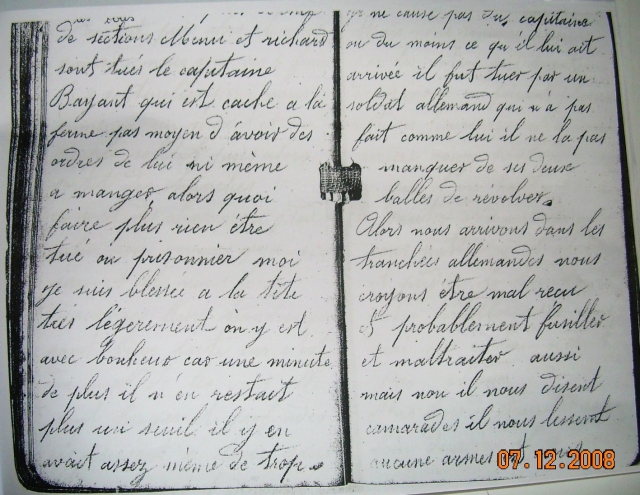 de sections Menu et richard
sont tués le capitaine
Bayart qui est caché a la
ferme pas moyen d'avoir des
ordres de lui ni même
a manger alors quoi
faire plus rien être
tué ou prisonnier moi
je suis blesse a la tête
tres légerement on y est
avec bonheur car une minute
de plus il n'en restait
plus un seuil il y en
avait assez même de trop.
je ne cause pas du capitaine
ou du moins ce qu'il lui ait
arrivée il fut tuer par un
soldat allemand qui n'a pas
fait comme lui il ne la pas
manquer de ses deux
balles de révolver.
Alors nous arrivons dans les
tranchées allemandes nous
croyons être mal recu
et probablement fusiller
et maltraiter aussi
mais non il nous disent
camarades il nous lessent
aucune armes et
07.12.2008